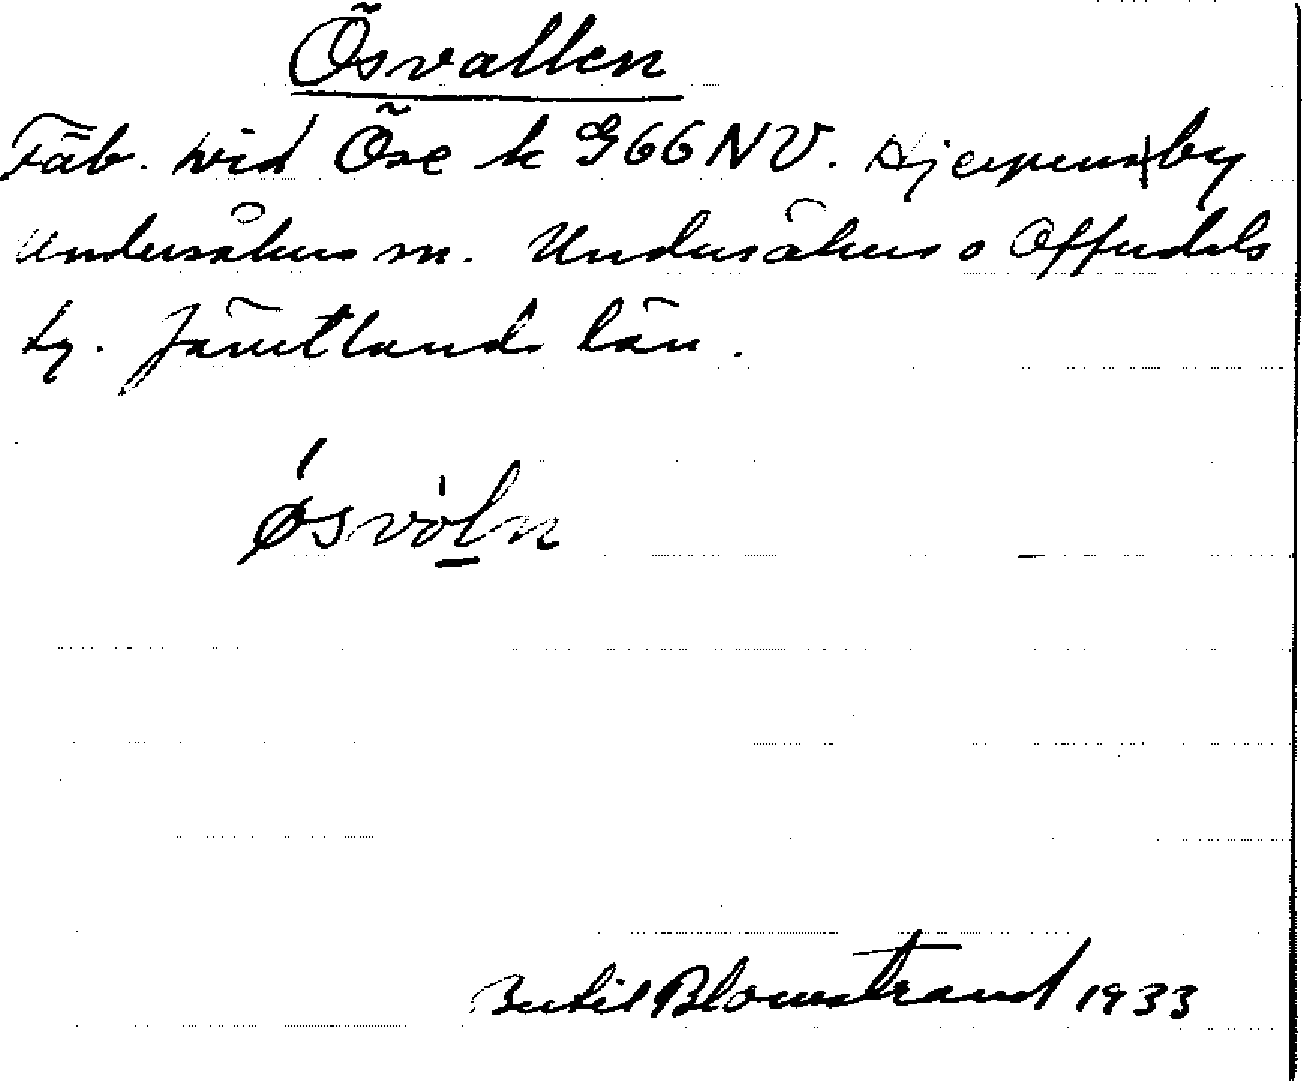 Ösvallen
Fäb. vid Öse k G66NV. by
Undersåkers sn. Undersåkers o Offerdals
tg. Jämtlands län.
ǿsvòl̠n
Bertil Blomstrand 1933